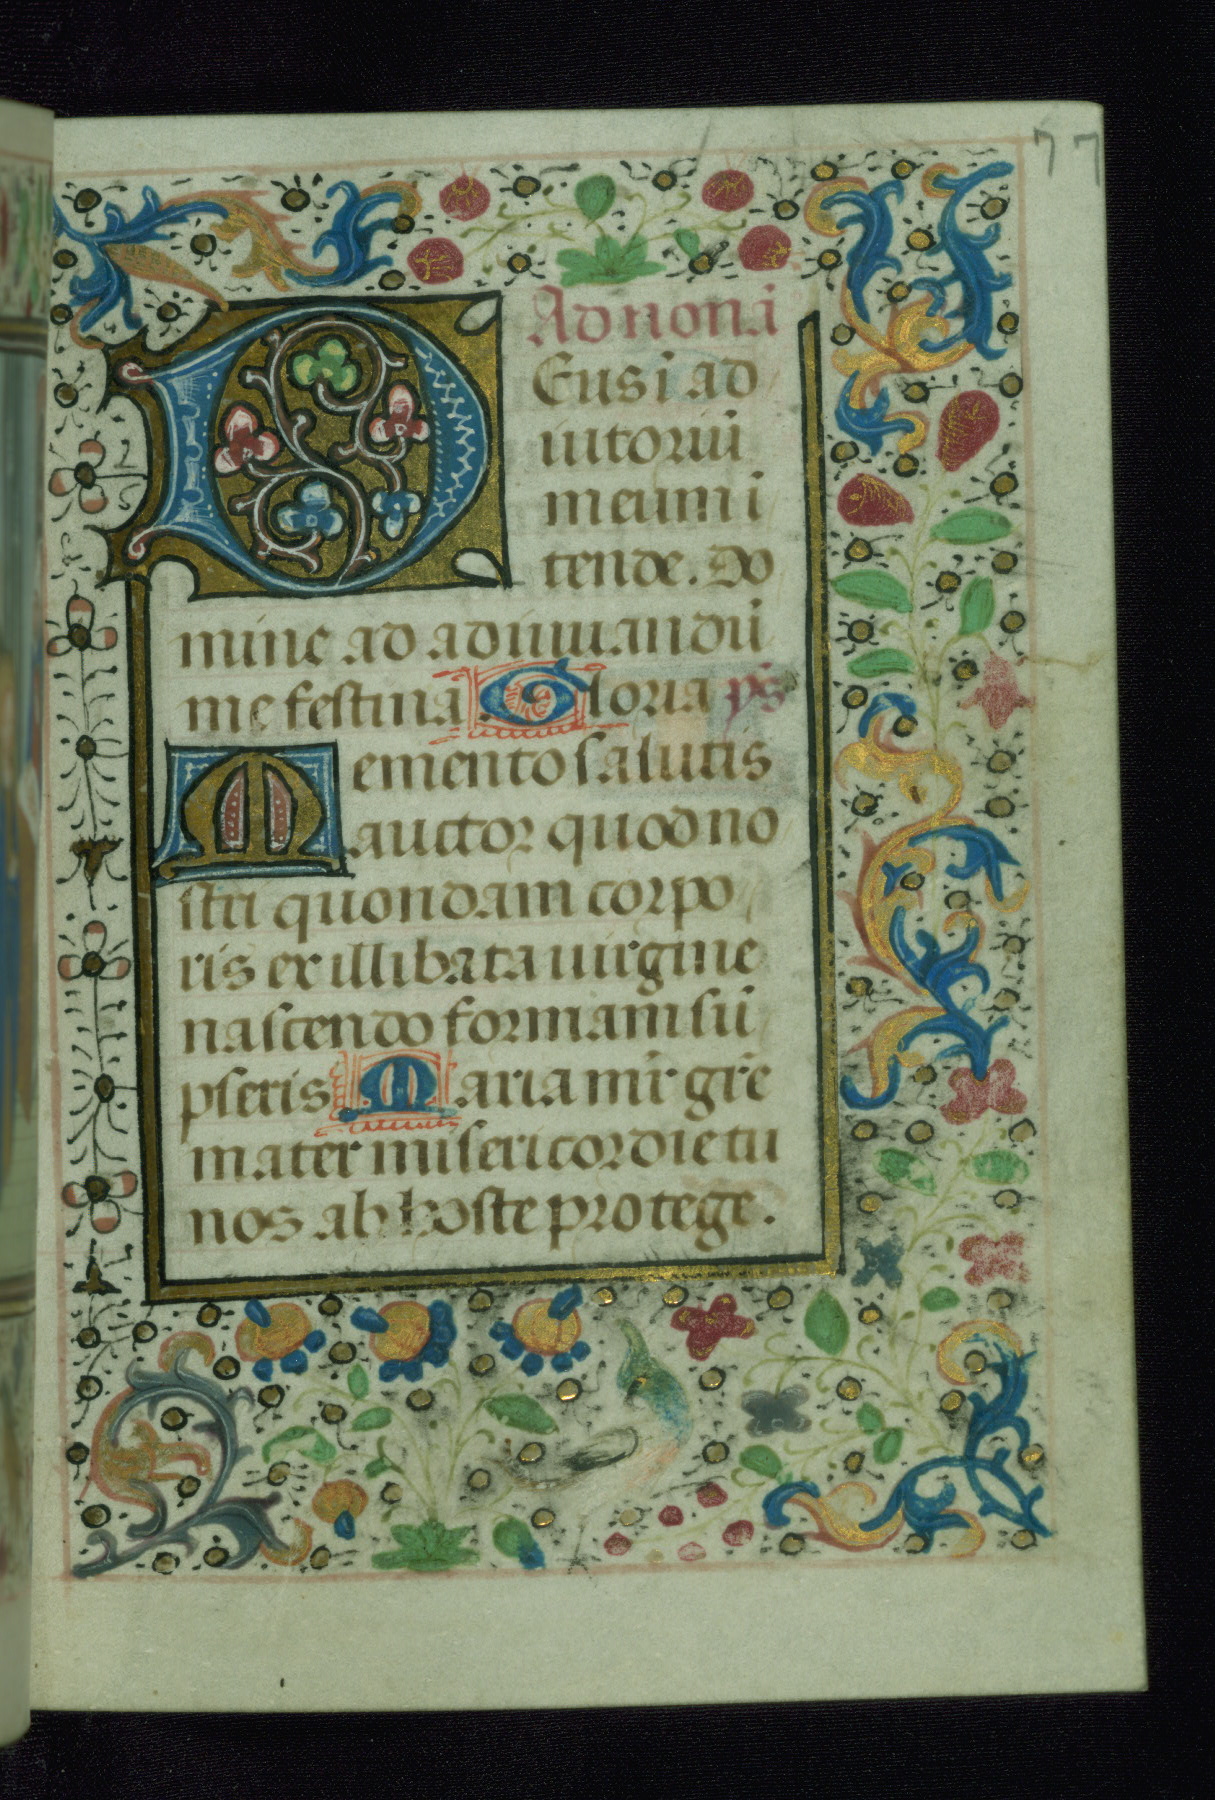 77
Ad nonā
Deus i ad
iutoriū
meum i
tende. Do
mine ad adiuuandū
me festina Gloria ps
Memento salutis
auctor quod no
stri quondam corpo
ris ex illibata uirgine
nascendo formam sū
pseris Maria mr̄ gr̄e
mater misericordie tu
nos ab hoste protege.